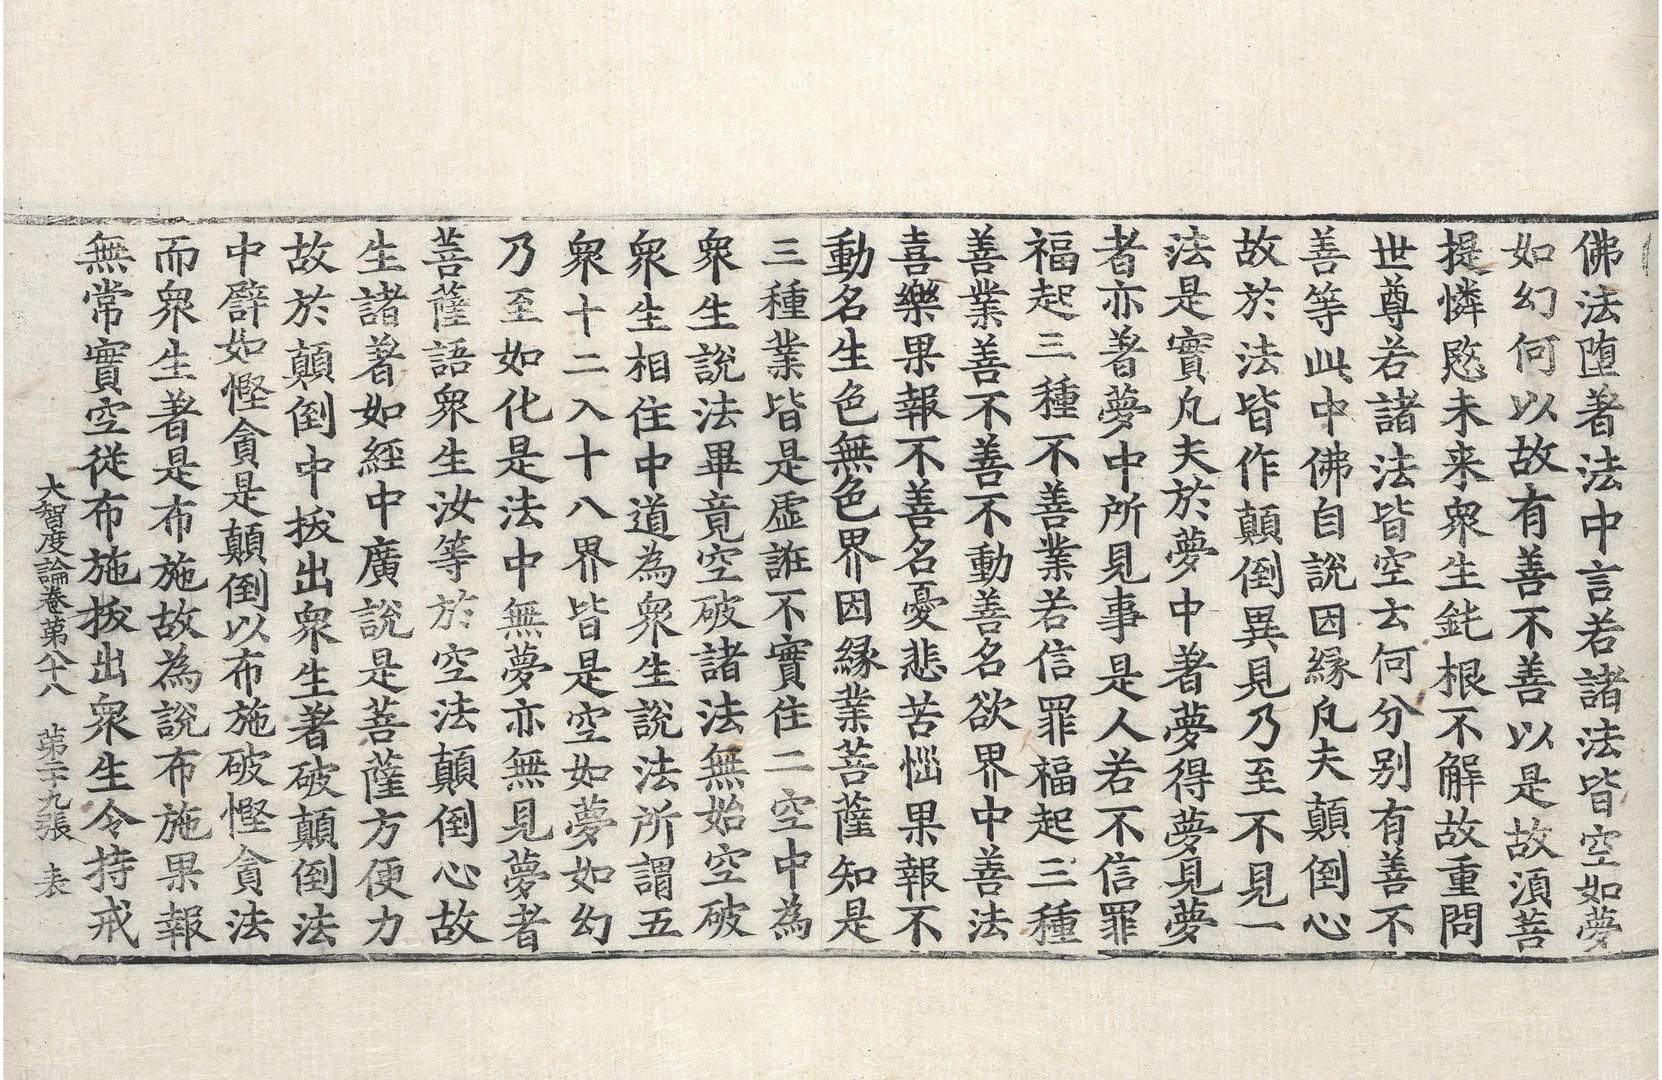 佛法墮著法中言若諸法皆空如夢
如幻何以故有善不善以是故湏菩
提憐愍未来衆生鈍根不解故重問
世尊若諸法皆空云何分別有善不
善等此中佛自說因縁凡夫顛倒心
故於法皆作顛倒異見乃至不見一
法是實凡夫於夢中著夢得夢見夢
者亦著夢中所見事是人若不信罪
福起三種不善業若信罪福起三種
善業善不善不動善名欲界中善法
喜樂果報不善名憂悲苦惱果報不
動名生色無色界因縁業菩薩知是
三種業皆是虛誑不實住二空中為
衆生說法畢竟空破諸法無始空破
衆生相住中道為衆生說法所謂五
衆十二入十八界皆是空如夢如幻
乃至如化是法中無夢亦無見夢者
菩薩語衆生汝等於空法顛倒心故
生諸著如經中廣說是菩薩方便力
故於顛倒中拔出衆生著破顛倒法
中譬如慳貪是顛倒以布施破慳貪法
而衆生著是布施故為說布施果報
無常實空從布施拔出衆生令持戒
大智度論卷第八十八 第二十九張 表